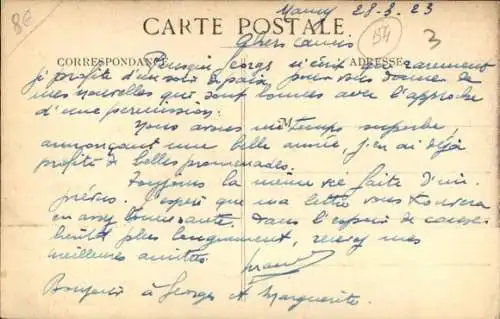 8€
Nancy 28-3-23
CARTE POSTALE
154
3
Chers amis
CORRESPONDANCE ADRESSE
Puisque Georges n'écrit que rarement
je profite d'un soir de paix pour vous donner de
mes nouvelles qui sont bonnes avec l'approche
d'une permission.
Nous avons un temps superbe,
annonçant une belle année, j'en ai déjà
profité de belles promenades.
Toujours la même vie faite d'im-
prévus. J'espère que ma lettre vous trouvera
en assez bonne santé. Dans l'espoir de causer
bientôt plus longuement, recevez mes
meilleures amitiés.
Bonjour à Georges et Marguerite.